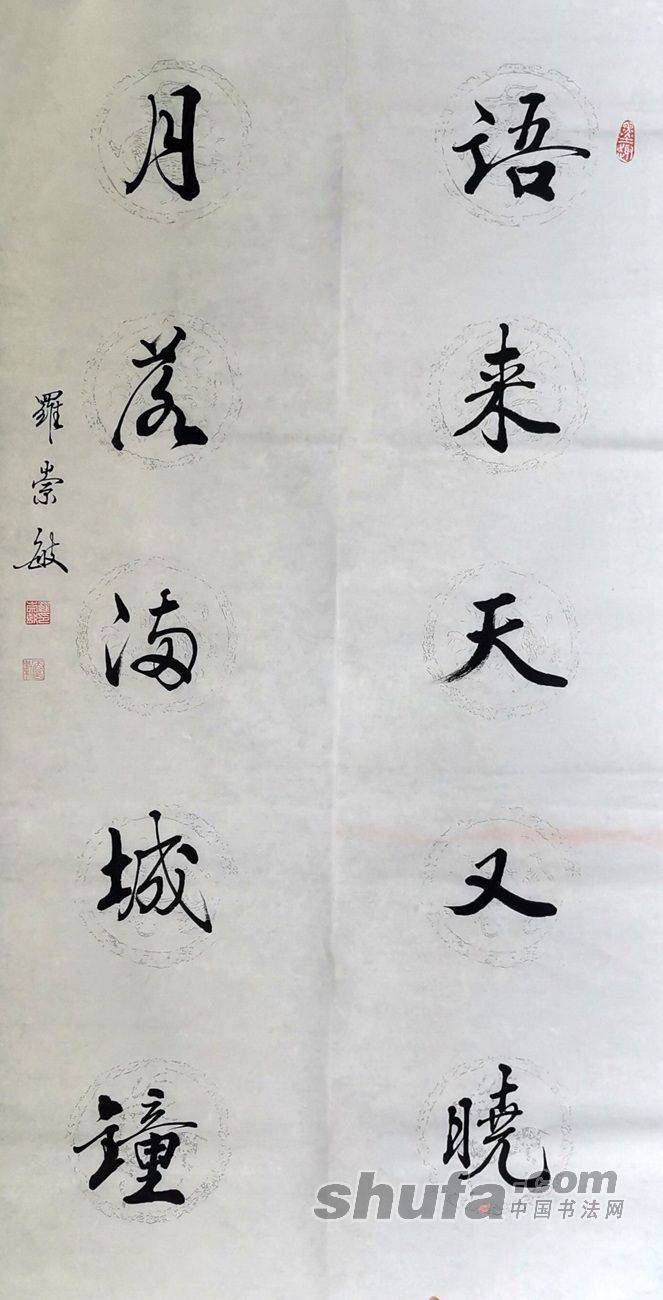 语来天又曉
月落满城鐘
羅崇敏
shufa.com
中国书法网